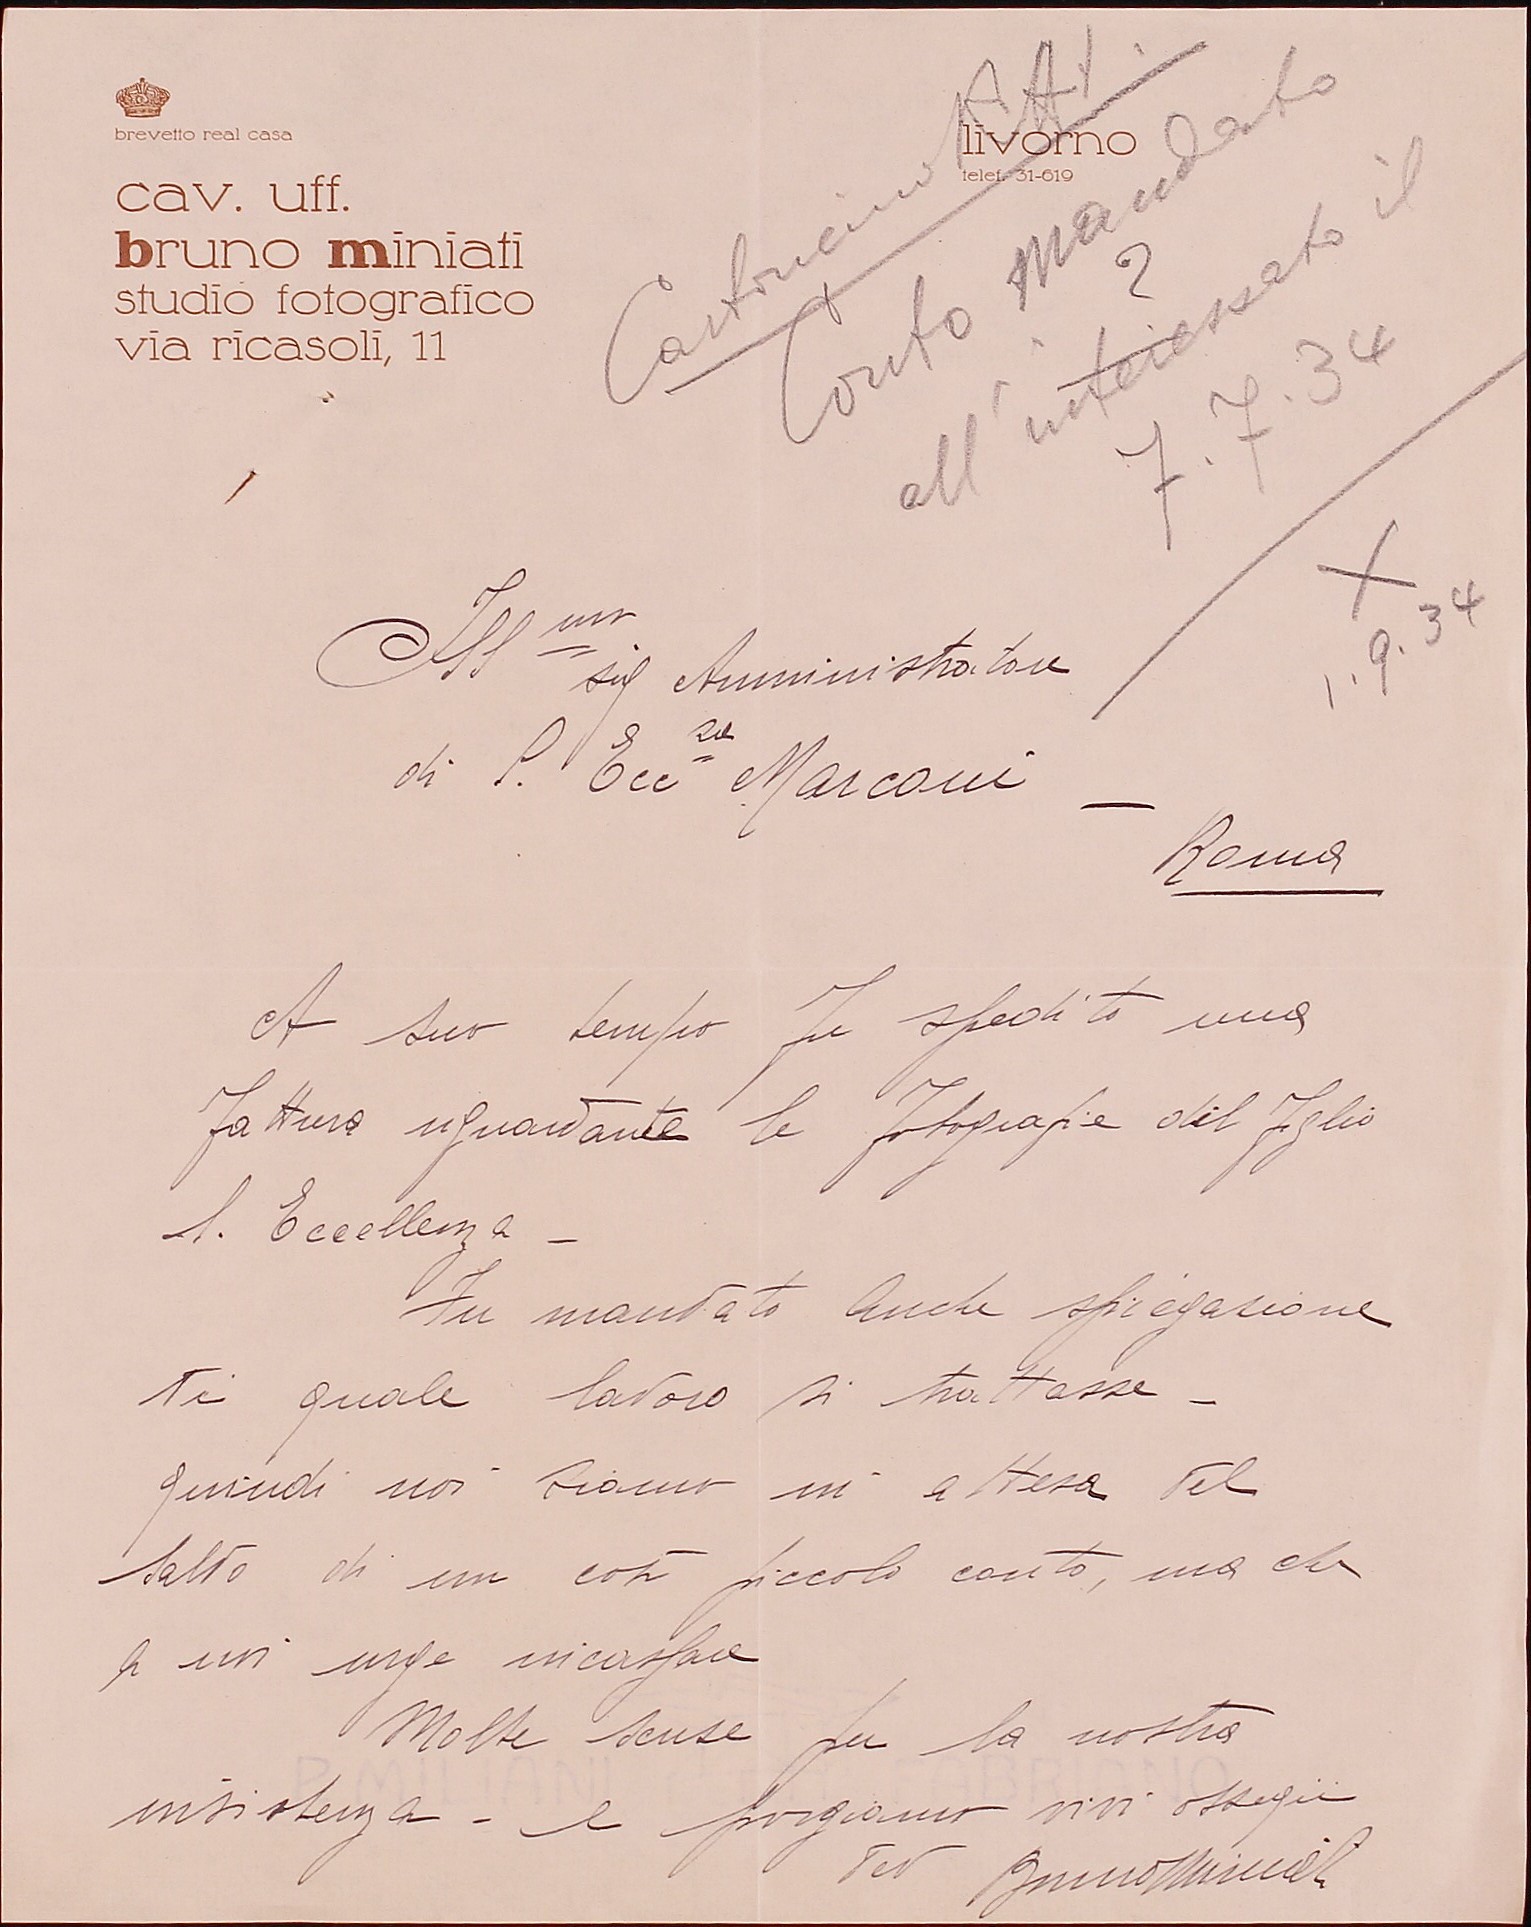 brevetto real casa
cav. uff.
bruno miniati
studio fotografico
via ricasoli, 11
livorno
telef. 31-619
Cartoncino
Conto mandato
?
all'interessato il
7.7.34
X
1.9.34
Ill mo
sig Amministratore
di S. Ecc za Marconi —
Roma
A suo tempo fu spedito una
fattura riguardante le fotografie del figlio
S. Eccellenza –
Fu mandato anche spiegazione
di quale lavoro si trattasse –
quindi noi siamo in attesa del
saldo di un così piccolo conto, ma che
a noi urge incassare
Molte scuse per la nostra
insistenza – e porgiamo vivi ossequi
Dev Bruno Miniati
P. MILIANI FABRIANO